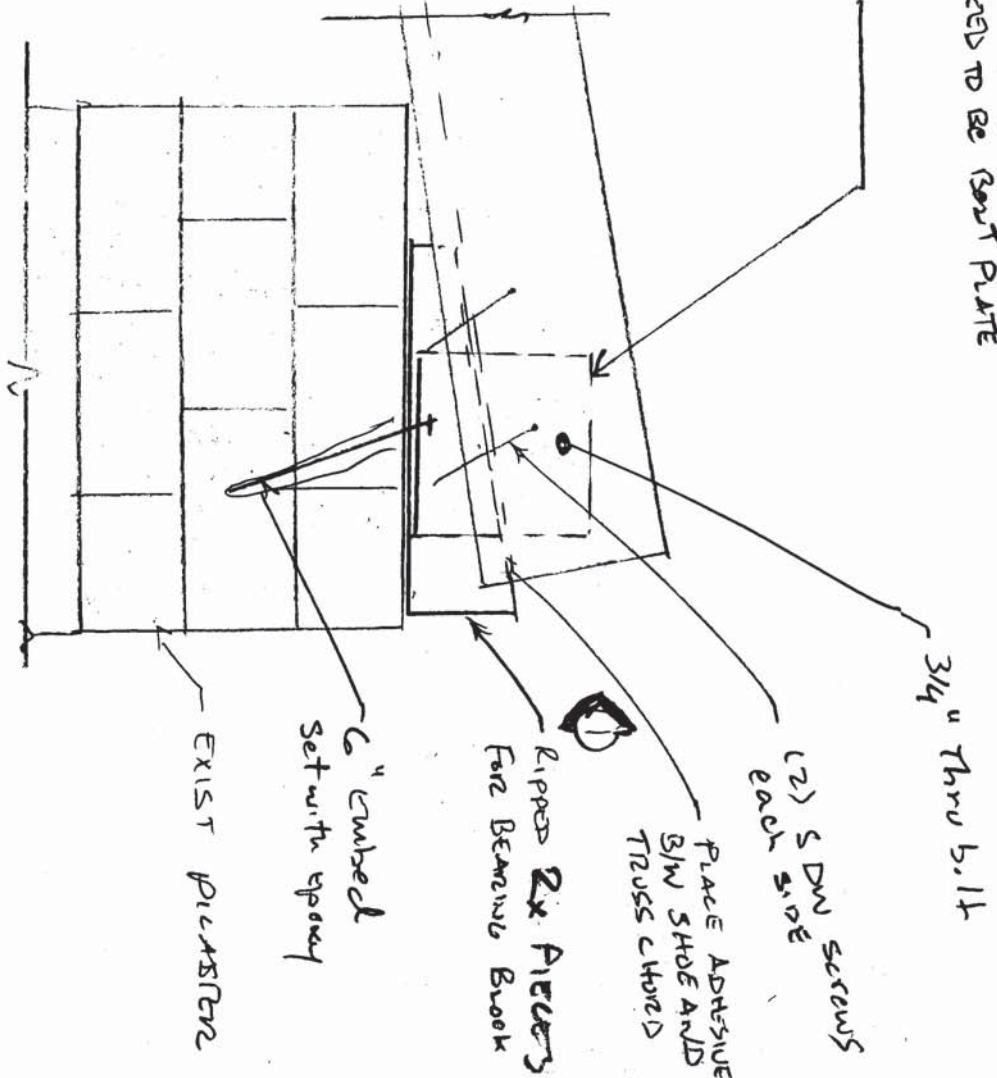 ZED TO BE BENT PLATE
3/4" Thru bolt
(2) SDW screws
each side
PLACE ADHESIVE
B/W SHOE AND
TRUSS CHORD
RIPPED 2x PIECES
FOR BEARING BLOCK
6" embed
set with epoxy
EXIST PILASTER